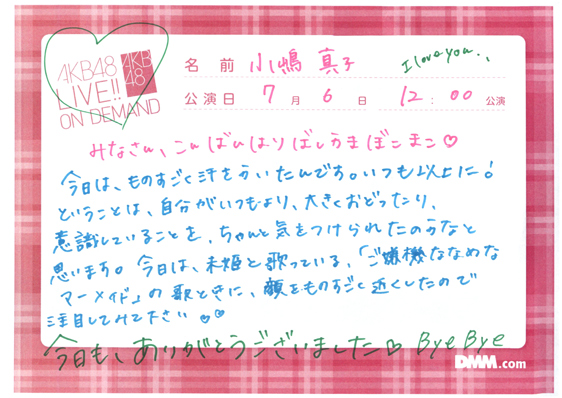 AKB48
LIVE!!
ON DEMAND
AKB
48
名 前 小嶋 真子 I love you..
公演日 7 月 6 日 12 : 00 公演
みなさん、こんばじはりばしうまぼこまこ♡
今日は、ものすごく汗をかいたんです。いつも以上に!
ということは、自分がいつもより、大きくおどったり、
意識していることを、ちゃんと気をつけられたのかなと
思います。今日は、未姫と歌っている、「ご嫌機ななめな
マーメイド」の歌ときに、顔をものすごく近くしたので
注目してみて下さい♡♡
今日も、ありがとうございました♡ Bye Bye
DMM.com